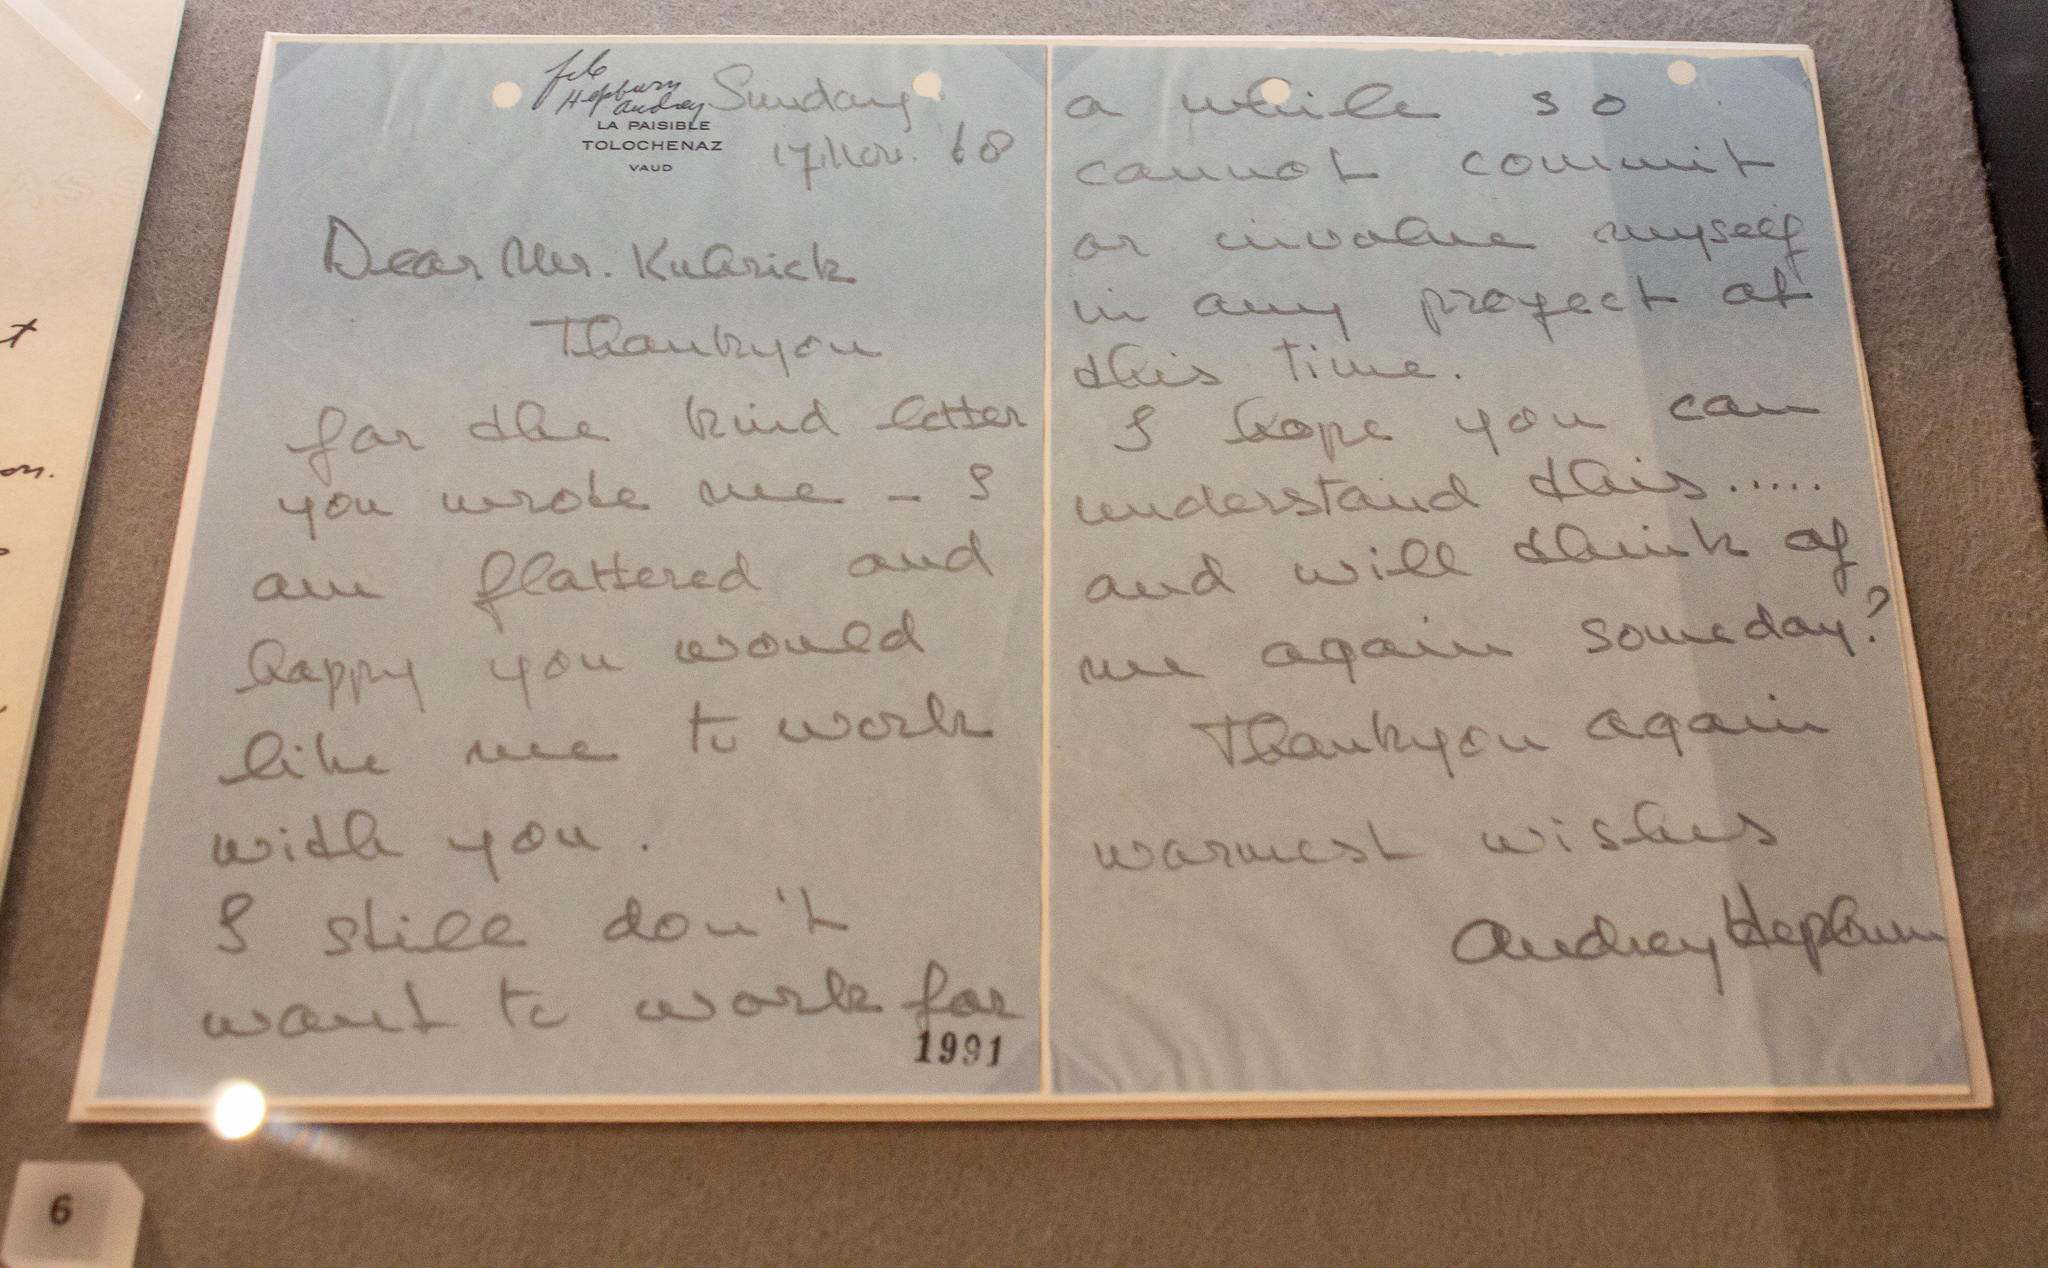 file
Hepburn
Audrey
Sunday
LA PAISIBLE
TOLOCHENAZ
VAUD
17, Nov. '68
Dear Mr. Kubrick
Thankyou
for the kind letter
you wrote me - I
am flattered and
happy you would
like me to work
with you.
I still don't
want to work for
1991
a while so
cannot commit
or involve myself
in any project at
this time.
I hope you can
understand this.....
and will think of
me again someday?
Thankyou again
warmest wishes
Audrey Hepburn
on.
6